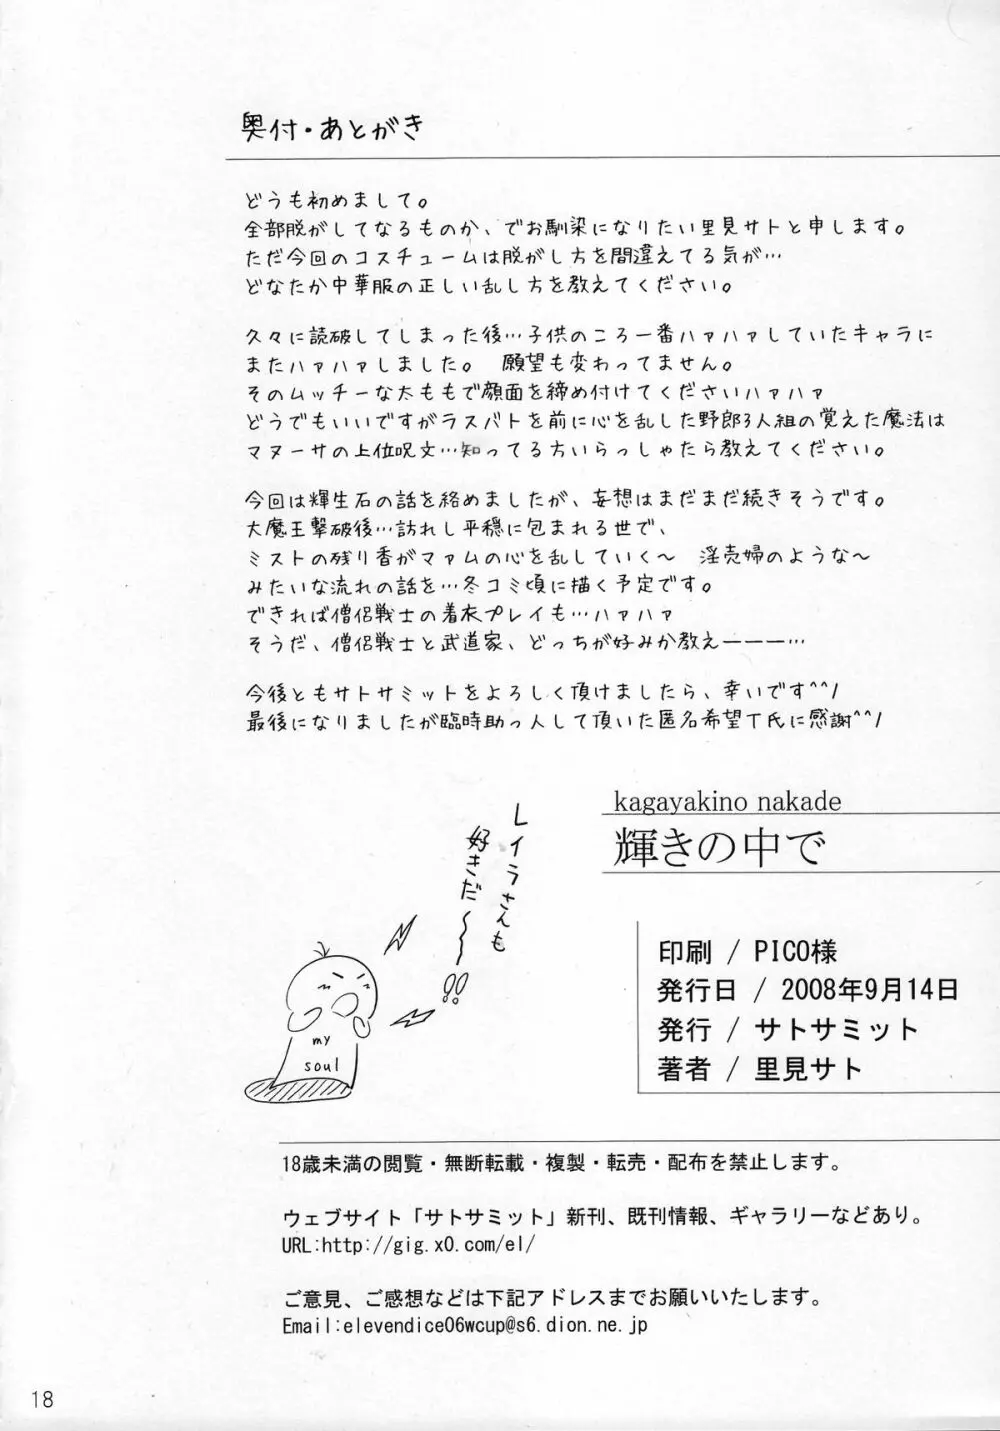 奥付・あとがき
どうも初めまして。
全部脱がしてなるものか、でお馴染になりたい里見サトと申します。
ただ今回のコスチュームは脱がし方を間違えてる気が…
どなたか中華服の正しい乱し方を教えてください。
久々に読破してしまった後…子供のころ一番ハァハァしていたキャラに
またハァハァしました。 願望も変わってません。
そのムッチーな太ももで顔面を締め付けてくださいハァハァ
どうでもいいですがラスバトを前に心を乱した野郎3人組の覚えた魔法は
マヌーサの上位呪文…知ってる方いらっしゃたら教えてください。
今回は輝生石の話を絡めましたが、妄想はまだまだ続きそうです。
大魔王撃破後…訪れし平穏に包まれる世で、
ミストの残り香がマァムの心を乱していく～ 淫売婦のような～
みたいな流れの話を…冬コミ頃に描く予定です。
できれば僧侶戦士の着衣プレイも…ハァハァ
そうだ、僧侶戦士と武道家、どっちが好みか教え―――…
今後ともサトサミットをよろしく頂けましたら、幸いです^^/
最後になりましたが臨時助っ人して頂いた匿名希望T氏に感謝^^/
レイラさんも
好きだ～～!!
my
soul
kagayakino nakade
輝きの中で
印刷 / PICO様
発行日 / 2008年9月14日
発行 / サトサミット
著者 / 里見サト
18歳未満の閲覧・無断転載・複製・転売・配布を禁止します。
ウェブサイト「サトサミット」新刊、既刊情報、ギャラリーなどあり。
URL:http://gig.x0.com/el/
ご意見、ご感想などは下記アドレスまでお願いいたします。
Email:elevendice06wcup@s6.dion.ne.jp
18